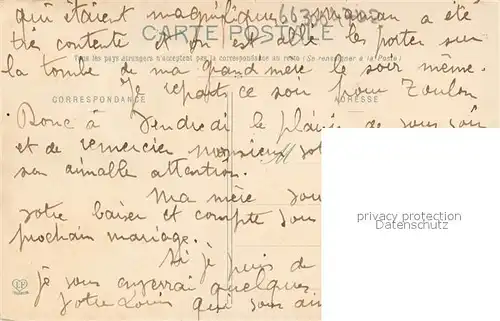 qui étaient magnifiques. Maman a été
CARTE POSTALE
très contente et on est allé les porter sur
Tous les pays étrangers n'acceptent pas la correspondance au recto (Se renseigner à la Poste)
la tombe de ma grand mère le soir même.
Je repart ce soir pour Toulon
CORRESPONDANCE
ADRESSE
Donc à Vendredi le plaisir de vous voir
et de remercier monsieur
son aimable attention.
Ma mère
votre baiser et compte sur
prochain mariage.
Si je puis de
je vous enverrai quelques
Votre Louis qui vous
privacy protection
Datenschutz